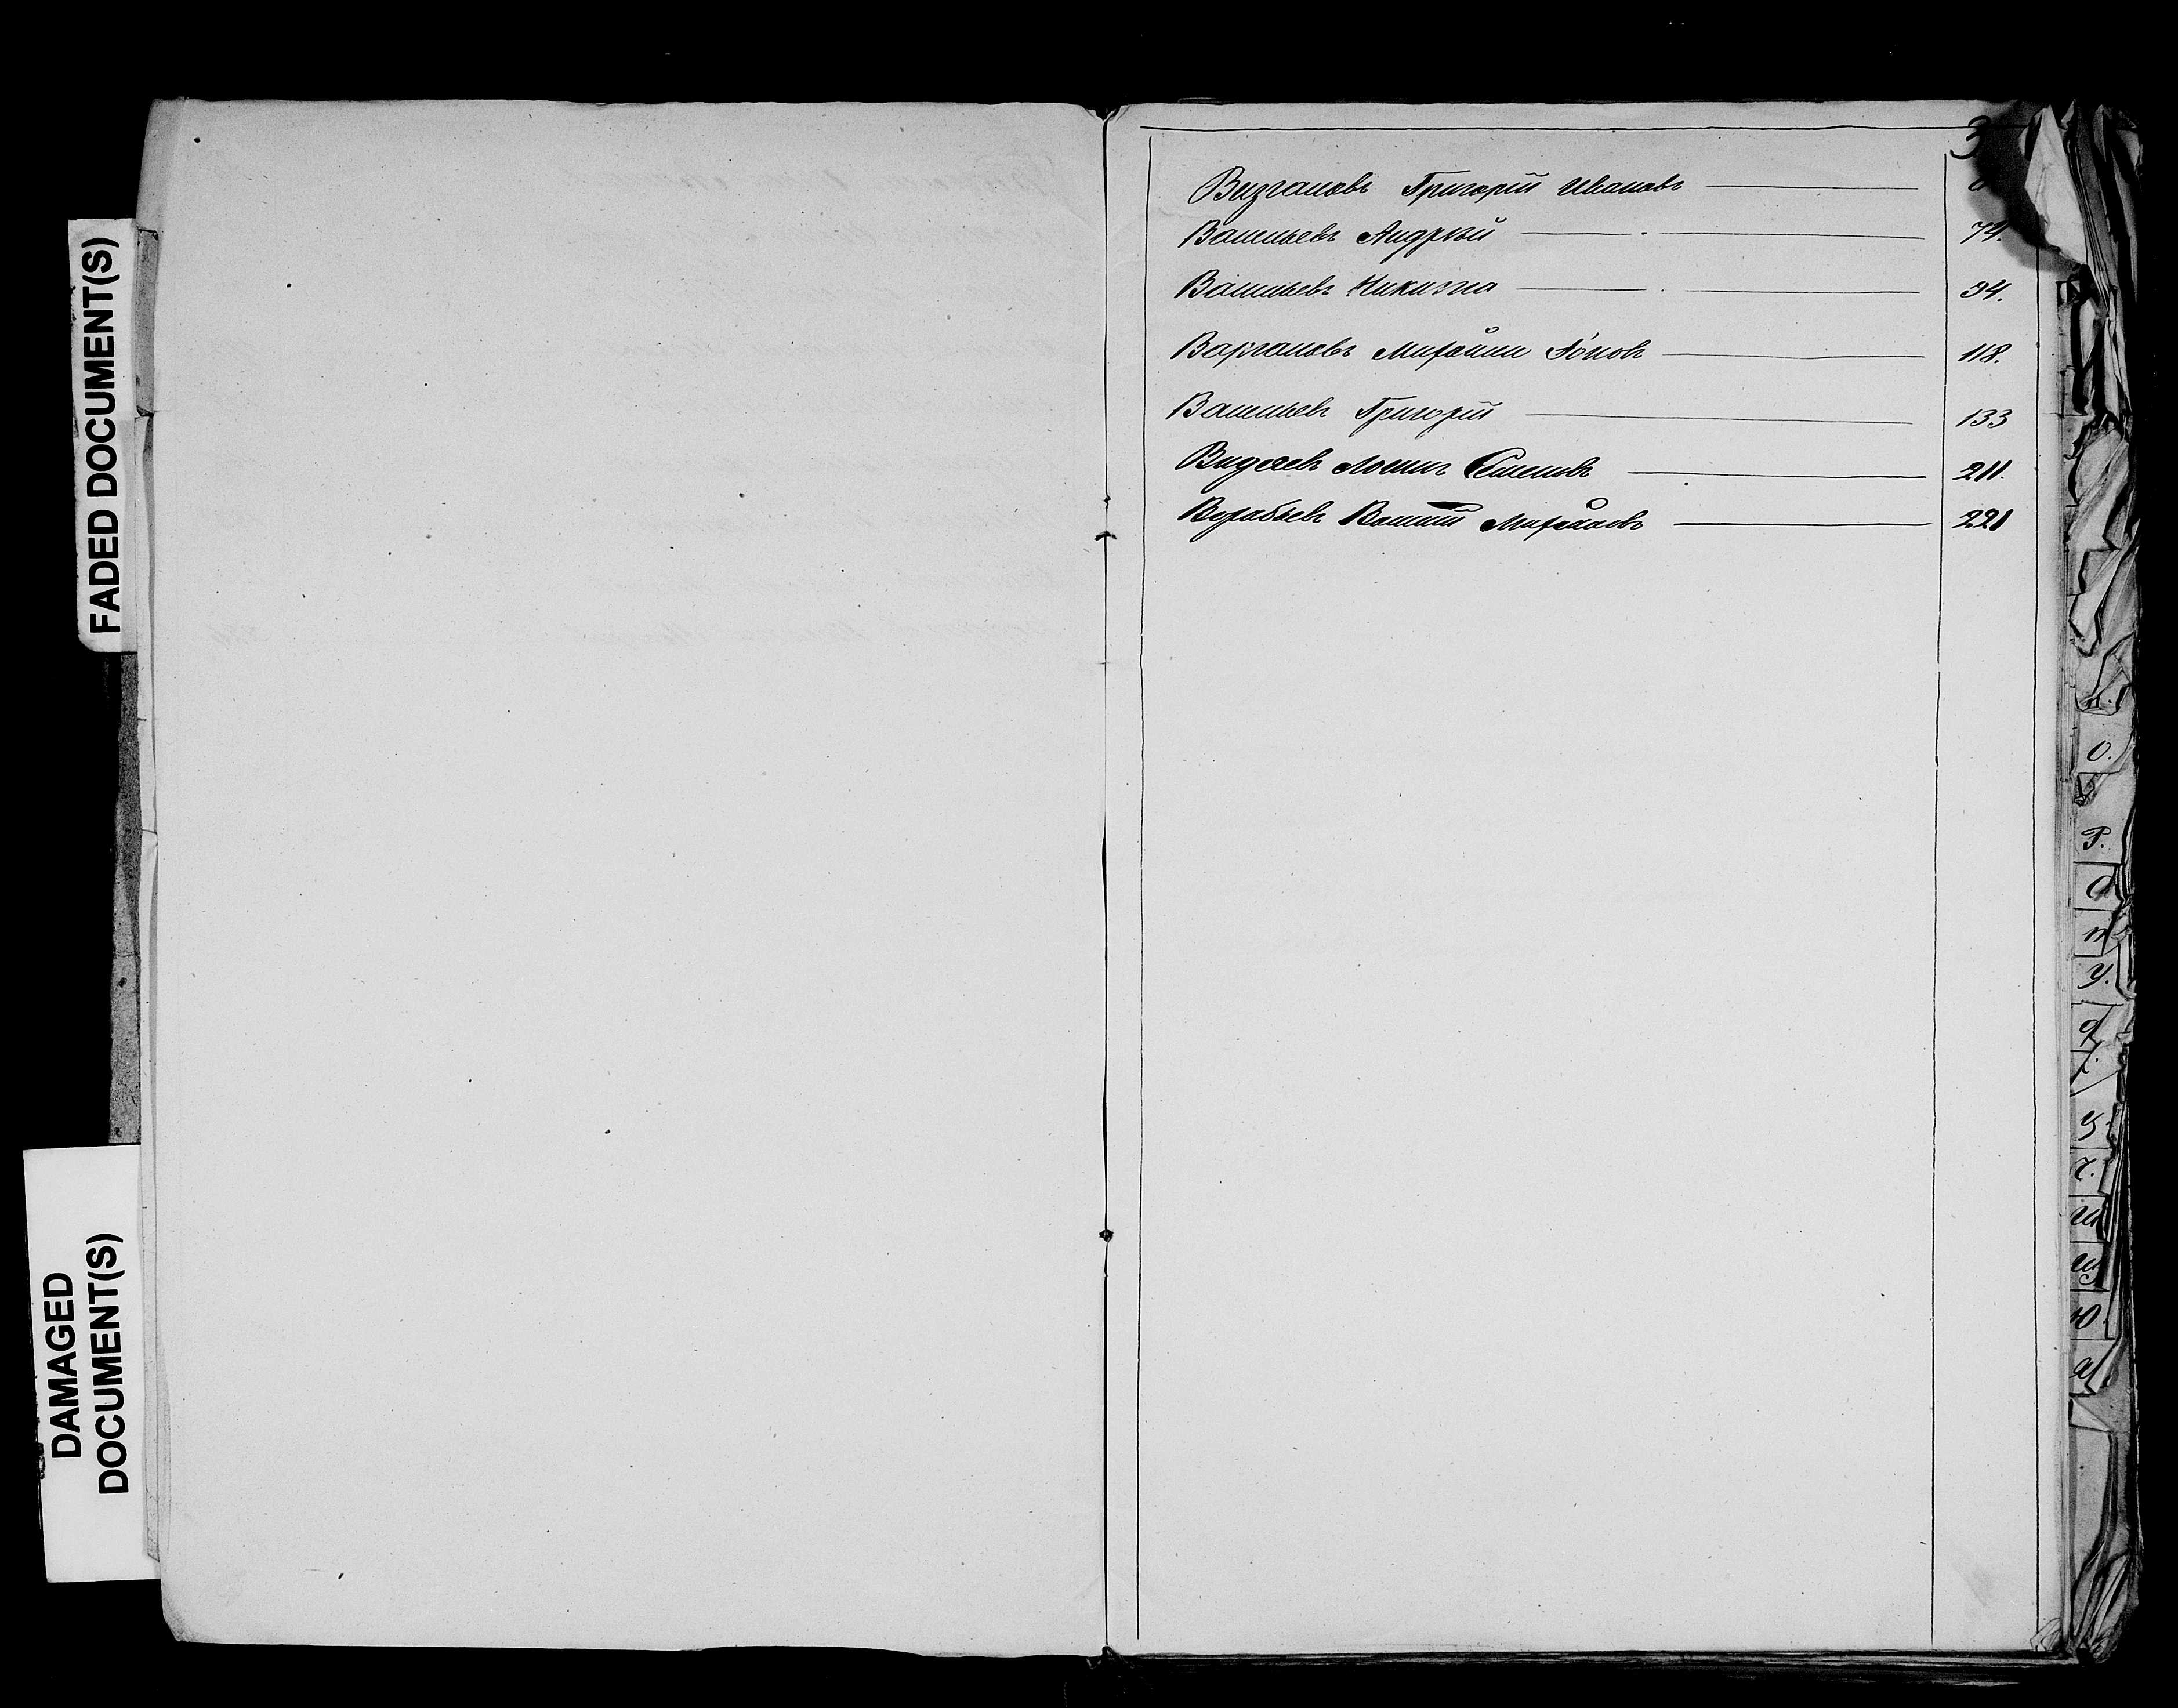 FADED DOCUMENT(S)
DAMAGED
DOCUMENT(S)
3
Визгаловъ Григорій Ивановъ
Васильевъ Андрей 74.
Васильевъ Никита 94.
Варгановъ Михаилъ 118.
Васильевъ Григорій 133
Видяевъ Логинъ Семеновъ 211.
Воробьевъ Василій Михайловъ 221
О.
Р.
С
Т
У.
Ф
Ц
Ч.
Ш
Щ
Ю